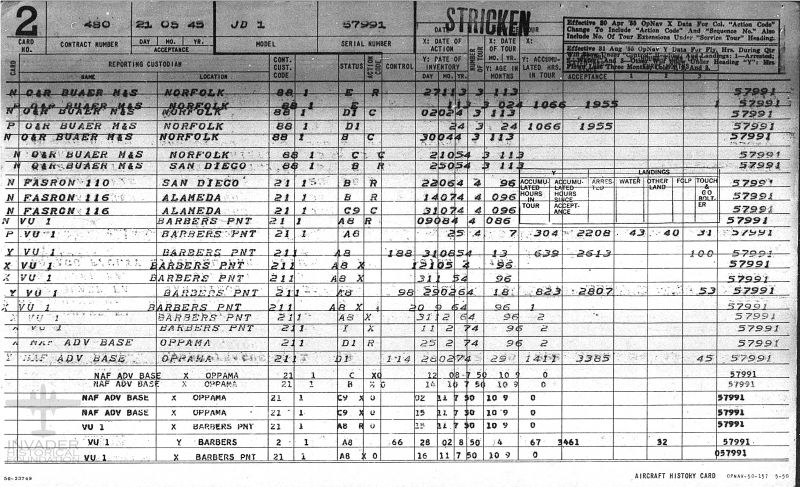 2 480 21 05 45 JD 1 57991 STRICKEN
CARD NO. CONTRACT NUMBER DAY MO. YR. ACCEPTANCE MODEL SERIAL NUMBER
X: DATE OF ACTION NUMBER OF TOUR X: DATE OF TOUR
Y: PERIOD OF INVENTORY Y: AGE IN MONTHS ACCUMU-LATED HRS. IN TOUR
Effective 30 Apr '55 OpNav X Data For Col. "Action Code"
Change To Include "Action Code" And "Sequence No." Also
Include No. Of Tour Extensions Under "Service Tour" Heading.
Effective 31 Aug '55 OpNav Y Data For Fly. Hrs. During Qtr
REPORTING CUSTODIAN CONT. CUST. CODE STATUS ACTION CODE CONTROL DAY MO. YR. ACCEPTANCE
NAME LOCATION
N O&R BUAER M&S NORFOLK 88 1 E R 27113 3 113 57991
P O&R BUAER M&S NORFOLK 88 1 E 113 3 024 1066 1955 57991
N O&R BUAER M&S NORFOLK 88 1 D1 C 02024 3 113 57991
P O&R BUAER M&S NORFOLK 88 1 D1 24 3 24 1066 1955 57991
N O&R BUAER M&S NORFOLK 88 1 B C 30044 3 113 57991
N O&R BUAER M&S NORFOLK 88 1 C C 21054 3 113 57991
N O&R BUAER M&S SAN DIEGO 88 1 B R 25054 3 113 57991
Y LANDINGS
ACCUMU-LATED HOURS IN TOUR ACCUMU-LATED HOURS SINCE ACCEPT-ANCE ARRES-TED WATER OTHER LAND FCLP TOUCH & GO BOLT-ER
N FASRON 110 SAN DIEGO 21 1 B R 22064 4 96 57991
N FASRON 116 ALAMEDA 21 1 B R 14074 4 096 57991
N FASRON 116 ALAMEDA 21 1 C9 C 31074 4 096 57991
N VU 1 BARBERS PNT 21 1 A8 R 09084 4 086 57991
P VU 1 BARBERS PNT 21 1 A8 25 4 7 304 2208 43 40 31 57991
Y VU 1 BARBERS PNT 211 A8 188 310854 13 639 2613 100 57991
X VU 1 BARBERS PNT 211 A8 X 12105 4 96 57991
X VU 1 BARBERS PNT 211 A8 X 311 54 96 57991
Y VU 1 BARBERS PNT 211 A8 98 290264 181 823 2807 53 57991
X VU 1 BARBERS PNT 211 A8 X 20 9 64 96 1 57991
VU 1 BARBERS PNT 211 A8 X 3112 64 96 2 57991
VU 1 BARBERS PNT 211 I X 11 2 74 96 2 57991
NAF ADV BASE OPPAMA 211 D1 R 25 2 74 96 2 57991
Y NAF ADV BASE OPPAMA 211 D1 114 280274 29 1411 3385 45 57991
NAF ADV BASE X OPPAMA 21 1 C XO 12 08 7 50 10 9 0 57991
NAF ADV BASE X OPPAMA 21 1 B 14 10 7 50 10 9 0 57991
NAF ADV BASE X OPPAMA 21 1 C9 X O 02 11 7 50 10 9 0 57991
NAF ADV BASE X OPPAMA 21 1 C9 X O 15 11 7 50 10 9 0 57991
VU 1 X BARBERS PNT 21 1 A8 R O 15 11 7 50 10 9 0 57991
VU 1 Y BARBERS 2 1 A8 66 28 02 8 50 4 67 3461 32 57991
VU 1 X BARBERS PNT 21 1 A8 X O 16 11 7 50 10 9 0 057991
INVADER HISTORICAL FOUNDATION
50-23749 AIRCRAFT HISTORY CARD OPNAV-50-157 5-50